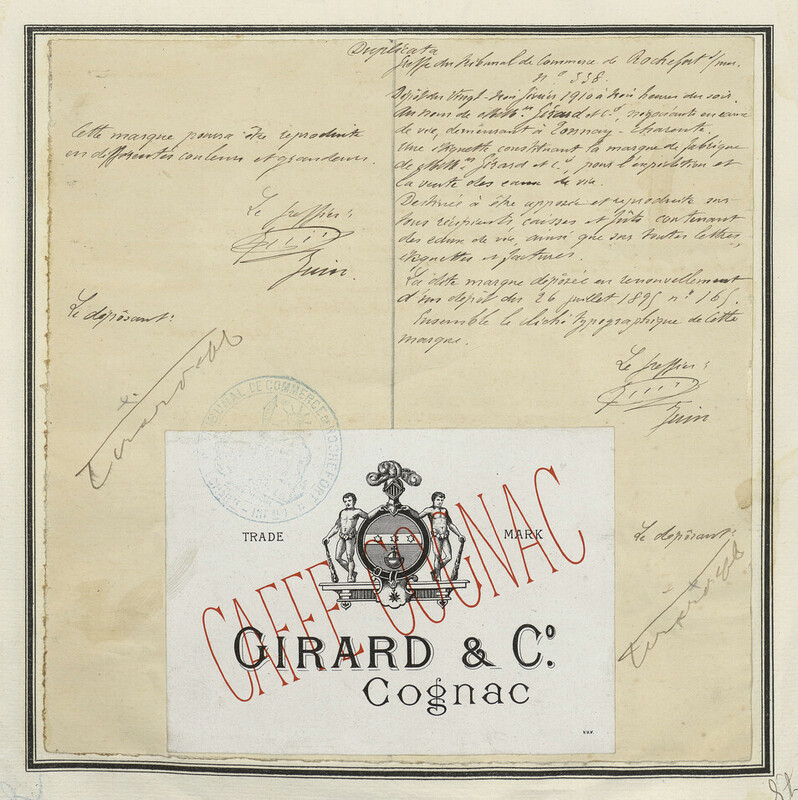 Duplicata
Greffe du tribunal de Commerce de Rochefort s/mer.
N° 338.
Dépôt du Vingt-trois février 1910 à trois heures du soir.
Au nom de MM. Girard et Cº, négociants en eaux
de vie, demeurant à Tonnay-Charente.
Une étiquette constituant la marque de fabrique
de MM. Girard et Cº, pour l'expédition et
la vente des eaux de vie.
Destinée à être apposée et reproduite sur
tous récipients, caisses et fûts contenant
des eaux de vie, ainsi que sur toutes lettres,
étiquettes et factures.
La dite marque déposée en renouvellement
d'un dépôt du 26 juillet 1895 n° 165.
Ensemble le cliché typographique de cette
marque.
Le greffier:
Juin
Le déposant:
Cette marque pourra être reproduite
en différentes couleurs et grandeurs.
Le greffier:
Juin.
Le déposant:
TRIBUNAL DE COMMERCE ROCHEFORT
TRADE MARK
CAFFE COGNAC
GIRARD & Cº.
Cognac